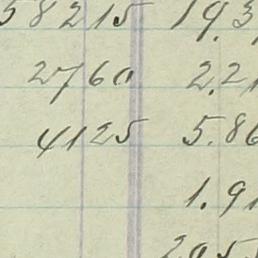 58215 19.3
2760 2.21
4125 5.86
1.91